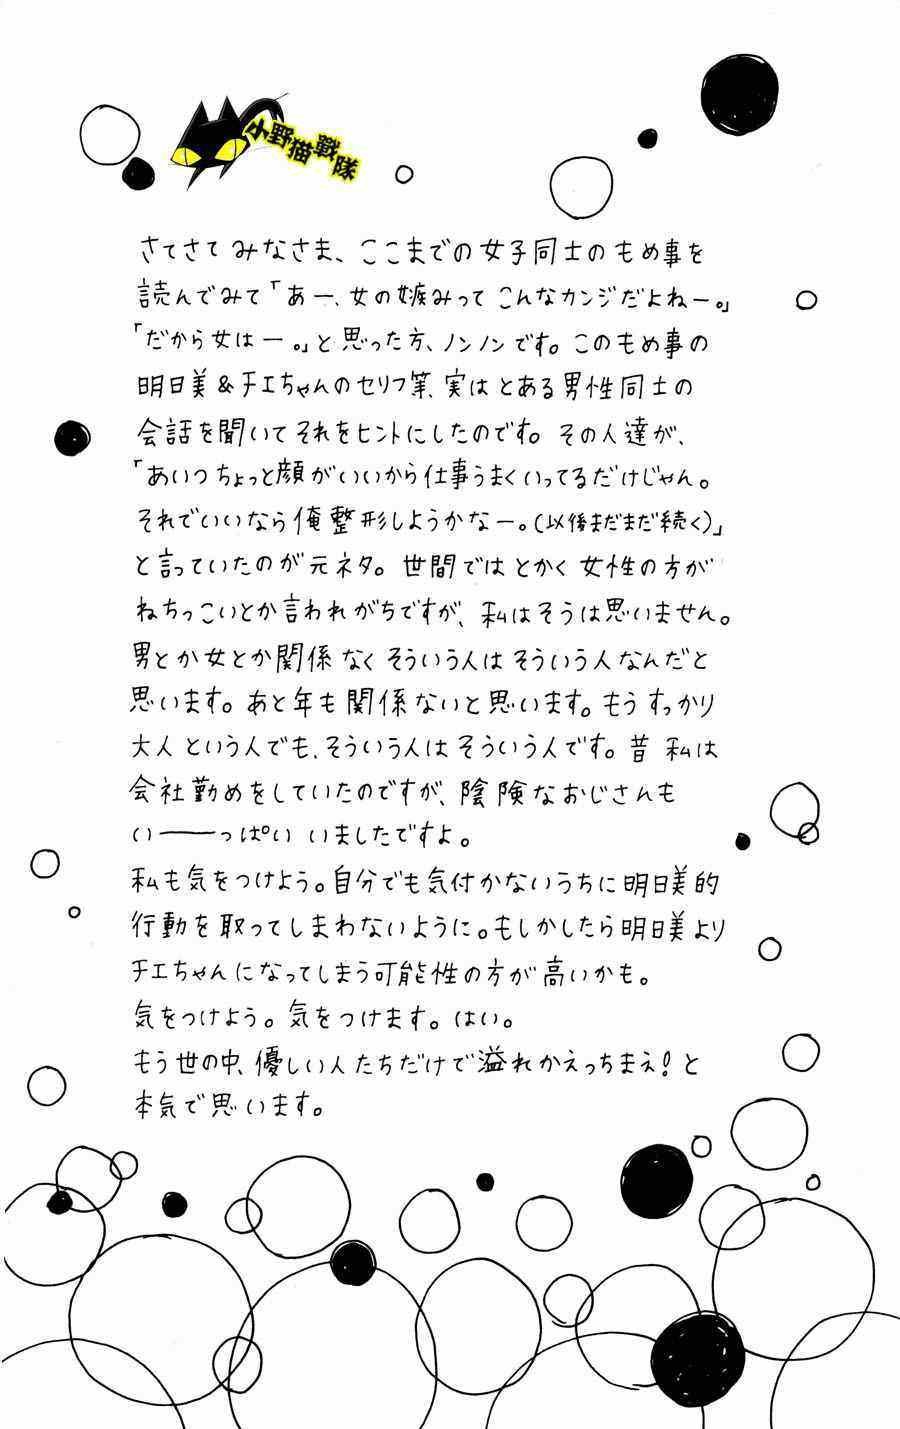 小野猫戰隊
さてさてみなさま、ここまでの女子同士のもめ事を
読んでみて「あー、女の嫉みってこんなカンジだよねー。」
「だから女はー。」と思った方、ノンノンです。このもめ事の
明日美&チエちゃんのセリフ等、実はとある男性同士の
会話を聞いてそれをヒントにしたのです。その人達が、
「あいつちょっと顔がいいから仕事うまくいってるだけじゃん。
それでいいなら俺整形しようかなー。(以後まだまだ続く)」
と言っていたのが元ネタ。世間ではとかく女性の方が
ねちっこいとか言われがちですが、私はそうは思いません。
男とか女とか関係なくそういう人はそういう人なんだと
思います。あと年も関係ないと思います。もうすっかり
大人という人でも、そういう人はそういう人です。昔私は
会社勤めをしていたのですが、陰険なおじさんも
い――っぱいいましたですよ。
私も気をつけよう。自分でも気付かないうちに明日美的
行動を取ってしまわないように。もしかしたら明日美より
チエちゃんになってしまう可能性の方が高いかも。
気をつけよう。気をつけます。はい。
もう世の中、優しい人たちだけで溢れかえっちまえ!と
本気で思います。